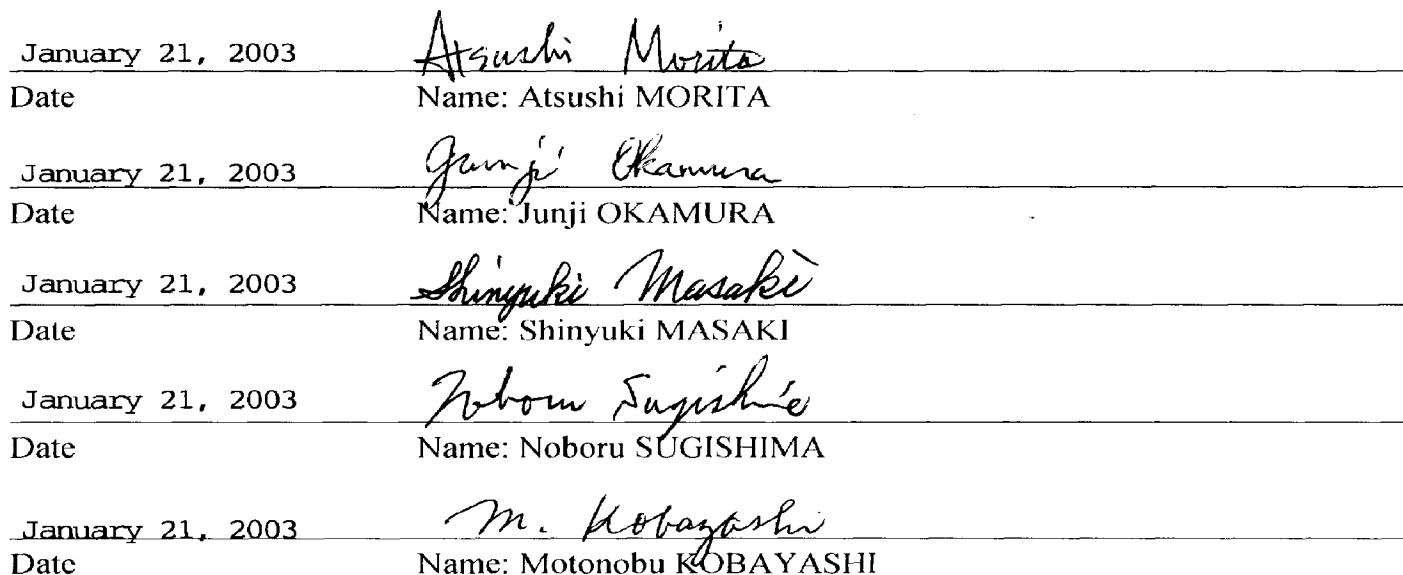 January 21, 2003 Atsushi Morita
Date Name: Atsushi MORITA
January 21, 2003 Junji Okamura
Date Name: Junji OKAMURA
January 21, 2003 Shinyuki Masaki
Date Name: Shinyuki MASAKI
January 21, 2003 Noboru
Date Name: Noboru SUGISHIMA
January 21, 2003 M. Kobayashi
Date Name: Motonobu KOBAYASHI